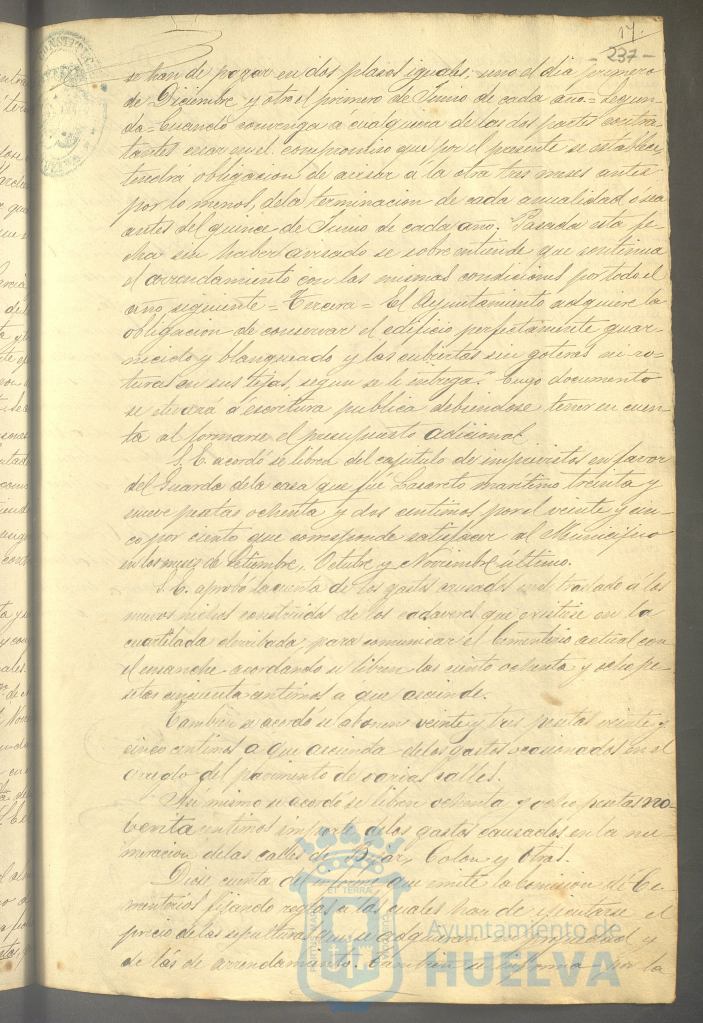 17.
- 237 -
se han de pagar en dos plasos iguales; uno el dia primero
de Diciembre y otro el primero de Junio de cada año.= Segun-
da= Cuando convenga á cualquiera de las dos partes contra
tantes cesar en el compromiso que por el presente se establece
tendra obligacion de avisar á la otra tres meses antes
por lo menos, de la terminacion de cada anualidad ó sea
antes del quince de Junio de cada año. Pasada esta fe-
cha sin haber avisado se sobre entiende que continua
el arrendamiento con las mismas condiciones por todo el
año siguiente = Tercera = El Ayuntamiento adquiere la
obligacion de conservar el edificio perfectamente guar-
necido y blanqueado y las cubiertas sin goteras ni ro-
turas en sus tejas, segun se le entrega." Cuyo documento
se elevará á escritura publica debiendose tener en cuen-
ta al formarse el presupuesto adicional.
S. E. acordó se libren del capitulo de imprevistos en favor
del Guarda de la casa que fué Lasareto maritimo treinta y
nueve pesetas ochenta y dos centimos por el veinte y cin-
co por ciento que corresponde satisfacer al Municipio
en los meses de Setiembre, Octubre y Noviembre último.
S. E. aprobó la cuenta de los gastos causados en el traslado á los
nuevos nichos construidos de los cadaveres que existian en la
cuartelada derribada, para comunicar el Cementerio actual con
el ensanche acordando se libren las ciento ochenta y ocho pe-
setas cincuenta centimos a que asciende.
Tambien se acordó se abonen veinte y tres pesetas veinte y
cinco centimos a que ascienda de los gastos ocasionados en el
arreglo del pavimento de varias calles.
Asi mismo se acordó se libren ochenta y ocho pesetas no-
benta centimos importe de los gastos causados en la nu-
meracion de las calles de Bejar, Colon y otras.
Diose cuenta del informe que emite la Comision de Ce-
menterios fijando reglas a las cuales han de ejecutarse el
precio de las sepulturas que se adquieran en propiedad y
de las de arrendamiento. Tambien se informa por la
Ayuntamiento de
HUELVA